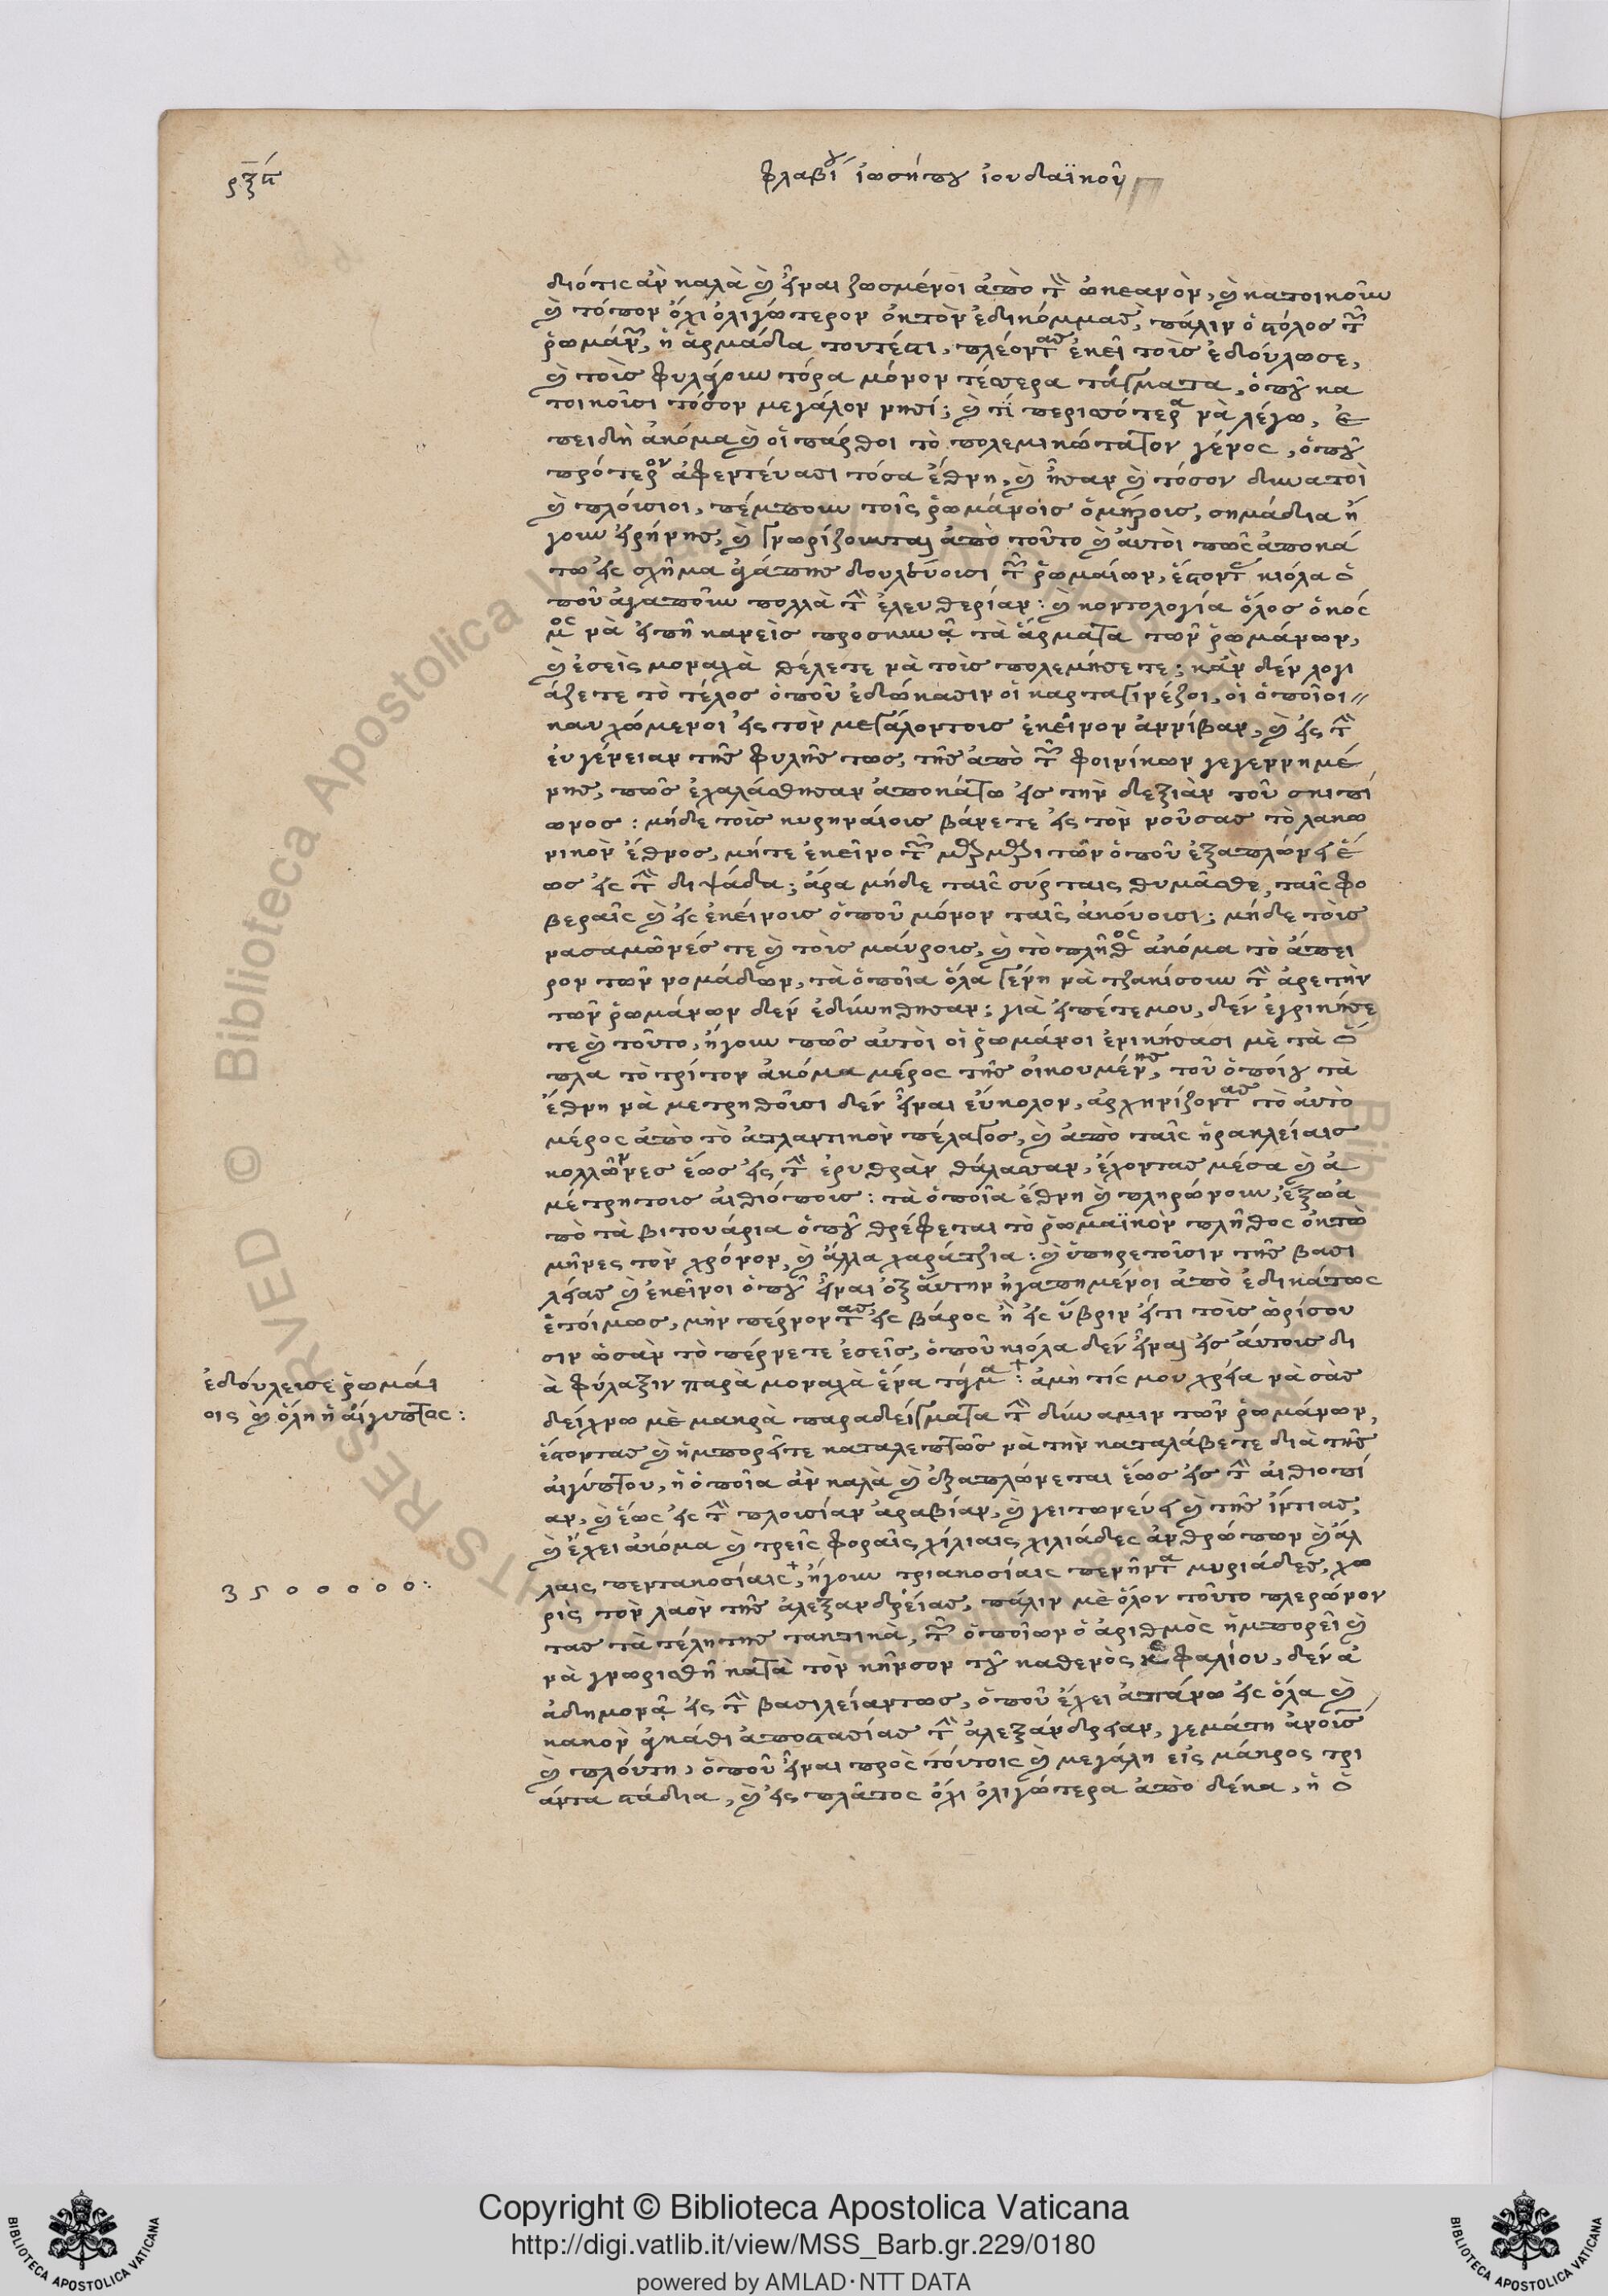 ρξα
φλαβίου ἰωσήπου ἰουδαϊκοῦ
διότις ἂν καλὰ καὶ εἶναι ζωσμένοι ἀπὸ τὸν ὠκεανὸν, καὶ κατοικοῦν
καὶ τόπον ὄχι ὀλιγώτερον ὀκτὸν ἐδικόμμας, πάλιν ὁ στόλος τῶν
ῥωμάνων, ἡ ἁρμάδα τουτέστι, πλέοντας ἐκεῖ τοὺς ἐδούλωσε,
καὶ τοὺς φυλάγουν τόρα μόνον τέσσερα τάγματα, ὁποῦ κα
τοικοῦσι τόσον μεγάλον νησί; καὶ τί περισσότερα νὰ λέγω, ἐ
πειδὴ ἀκόμα καὶ οἱ πάρθοι τὸ πολεμικώτατον γένος, ὁποῦ
πρότερον ἀφεντεύασι τόσα ἔθνη, καὶ ἦσαν καὶ τόσον δυνατοὶ
καὶ πλούσιοι, πέμπουν τοῖς ῥωμάνοις ὁμήρους, σημάδια ἤ
γουν εἰρήνης, καὶ γνωρίζουνται ἀπὸ τοῦτο καὶ αὐτοὶ πῶς ἀποκά
τω εἰς σχῆμα ἀγάπης δουλεύουσι τῶν ῥωμαίων, ἔστοντας κιόλα ὁ
ποῦ ἀγαποῦν πολλὰ τὴν ἐλευθερίαν: καὶ κοντολογία ὅλος ὁ κόσ
μος νὰ εἰπῇ κανεὶς προσκυνᾷ τὰ ἄρματα τῶν ῥωμάνων,
καὶ ἐσεὶς μοναχὰ θέλετε νὰ τοὺς πολεμήσετε; κἂν δὲν λογι
άζετε τὸ τέλος ὁποῦ ἐδώκασιν οἱ καρταγινέζοι, οἱ ὁποῖοι
καυχώμενοι εἰς τὸν μεγάλοντους ἐκεῖνον ἀννίβαν, καὶ εἰς τὴν
εὐγένειαν τῆς φυλῆς τως, τῆς ἀπὸ τῶν φοινίκων γεγεννημέ
νης, πῶς ἐχαλάσθησαν ἀποκάτω εἰς τὴν δεξιὰν τοῦ σκιπί
ωνος: μήδε τοὺς κυρηναίους βάνετε εἰς τὸν νοῦσας τὸ λακω
νικὸν ἔθνος, μήτε ἐκεῖνο τῶν μαρμαριτῶν ὁποῦ ἐξαπλώνει ἕ
ως εἰς τὴν διψάδα; ἆρα μήδε ταῖς σύρταις θυμᾶσθε, ταῖς φο
βεραῖς καὶ εἰς ἐκείνους ὁποῦ μόνον ταῖς ἀκούουσι; μήδε τοὺς
νασαμῶνές τε καὶ τοὺς μαύρους, καὶ τὸ πλῆθος ἀκόμα τὸ ἄπει
ρον τῶν νομάδων, τὰ ὁποῖα ὅλα γένη νὰ τζακίσουν τὴν ἀρετὴν
τῶν ῥωμάνων δὲν ἐδυνήθησαν; γιὰ εἰπέτε μου, δὲν ἐγρικήσε
τε καὶ τοῦτο, ἤγουν πῶς αὐτοὶ οἱ ῥωμάνοι ἐνικήσασι μὲ τὰ ὅ
πλα τὸ τρίτον ἀκόμα μέρος τῆς οἰκουμένης, τοῦ ὁποίου τὰ
ἔθνη νὰ μετρηθοῦσι δὲν εἶναι εὔκολον, ἀρχηνίζοντας τὸ αὐτὸ
μέρος ἀπὸ τὸ ἀτλαντικὸν πέλαγος, καὶ ἀπὸ ταῖς ἡρακλείαις
κολλώννες ἕως εἰς τὴν ἐρυθρὰν θάλασσαν, ἔχοντας μέσα καὶ ἀ
μέτρητους αἰθιόπους: τὰ ὁποῖα ἔθνη καὶ πληρώνουν, ἔξω ἀ
πὸ τὰ βιτουάρια ὁποῦ θρέφεται τὸ ῥωμαϊκὸν πλῆθος ὀκτὼ
μῆνες τὸν χρόνον, καὶ ἄλλα χαράτζια: καὶ ὑπηρετοῦσιν τῆς βασι
λείας καὶ ἐκεῖνοι ὁποῦ εἶναι ἐξ αὐτὴν ἠγαπημένοι ἀπὸ ἐδικάτως
ἑτοίμως, μὴν πέρνοντας εἰς βάρος ἢ εἰς ὕβριν εἴτι τοὺς ὡρίσου
σιν ὡσὰν τὸ πέρνετε ἐσεῖς, ὁποῦ κιόλα δὲν εἶναι εἰς αὐτοὺς δι
ὰ φύλαξιν παρὰ μοναχὰ ἕνα τάγμα: ἀμὴ τίς μου χρεία νὰ σᾶς
δείχνω μὲ μακρὰ παραδείγματα τὴν δύναμιν τῶν ῥωμάνων,
ἔστοντας καὶ ἠμπορεῖτε καταλεπτῶς νὰ τὴν καταλάβετε διὰ τῆς
αἰγύπτου, ἡ ὁποῖα ἂν καλὰ καὶ ἐξαπλώνεται ἕως εἰς τὴν αἰθιοπί
αν, καὶ ἕως εἰς τὴν πλουσίαν ἀραβίαν, καὶ γειτωνεύει καὶ τῆς ἰντίας,
καὶ ἔχει ἀκόμα καὶ τρεῖς φοραῖς χίλιαις χιλιάδες ἀνθρώπων καὶ ἄλ
λαις πεντακοσίαις, ἤγουν τριακοσίαις πενῆντα μυριάδες, χω
ρὶς τὸν λαὸν τῆς ἀλεξανδρείας, πάλιν μὲ ὅλον τοῦτο πλερώνον
τας τὰ τέλητης τακτικὰ, τῶν ὁποίων ὁ ἀριθμὸς ἠμπορεῖ καὶ
νὰ γνωρισθῆ κατὰ τὸν κῆνσον τοῦ καθενὸς κεφαλίου, δὲν ἀ
ἀδημονᾷ εἰς τὴν βασιλείαντως, ὁποῦ ἔχει ἀπάνω εἰς ὅλα καὶ
κακὸν ἀγκάθι ἀποστασίας τὴν ἀλεξάνδρειαν, γεμάτη ἀνοῦς
καὶ πλούτη, ὁποῦ εἶναι πρὸς τούτοις καὶ μεγάλη εἰς μάκρος τρι
άντα στάδια, καὶ εἰς πλάτος ὄχι ὀλιγώτερα ἀπὸ δέκα, ἡ ὁ
ἐδούλεισε ῥωμάι
οις καὶ ὅλη ἡ αἴγυπτος:
3500000:
Copyright © Biblioteca Apostolica Vaticana
http://digi.vatlib.it/view/MSS_Barb.gr.229/0180
powered by AMLAD·NTT DATA